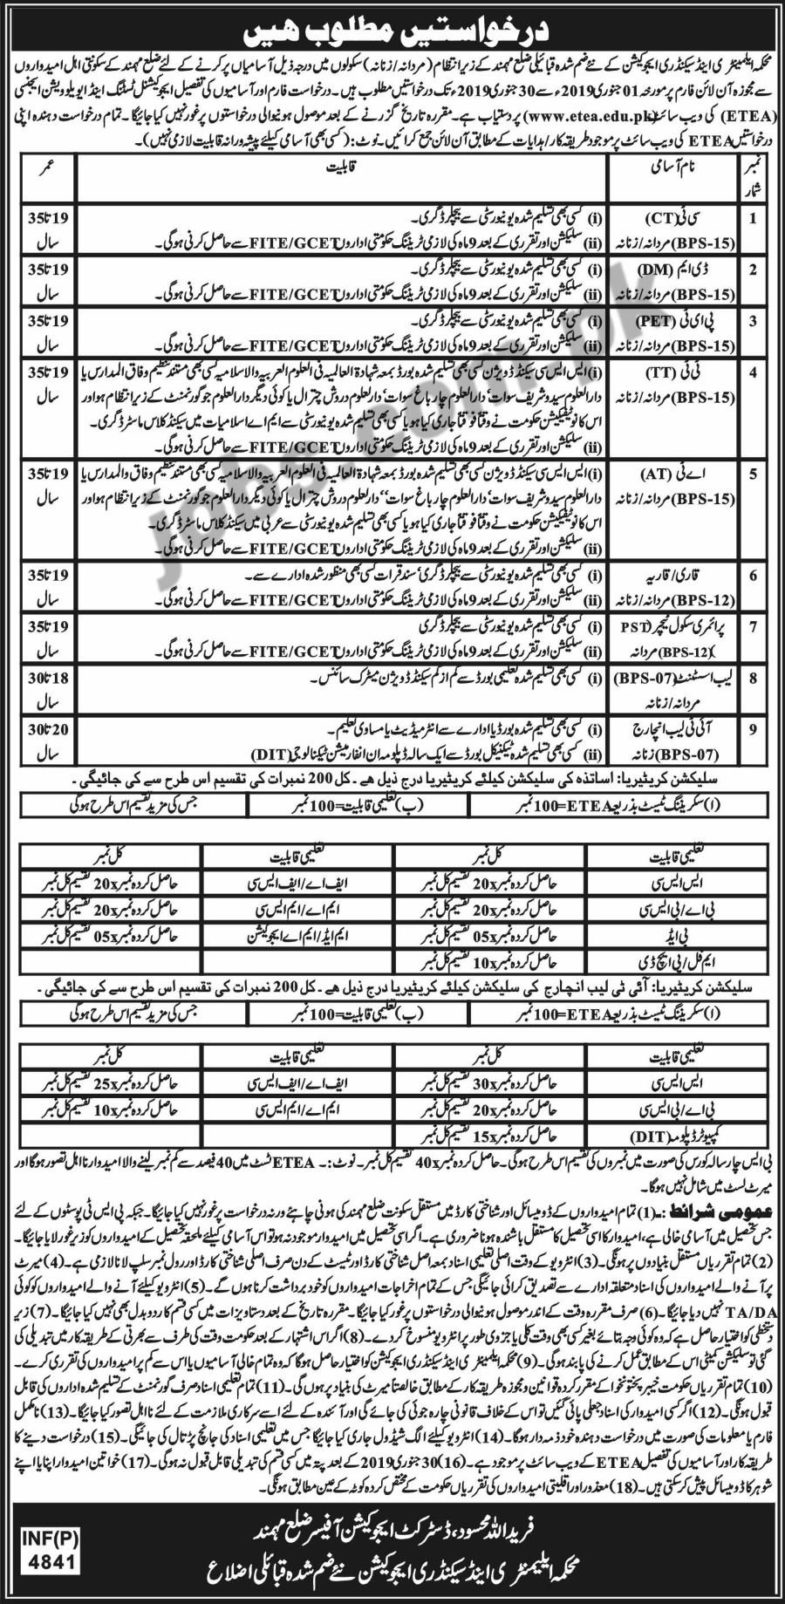 درخواستیں مطلوب ہیں
محکمہ ایلیمنٹری اینڈ سیکنڈری ایجوکیشن کے نئے ضم شدہ قبائلی ضلع مہمند کے زیر انتظام (مردانہ/زنانہ) سکولوں میں درجہ ذیل آسامیاں پر کرنے کے لئے ضلع مہمند کے سکونتی اہل امیدواروں
سے مجوزہ آن لائن فارم پر مورخہ 01 جنوری 2019ء سے 30 جنوری 2019ء تک درخواستیں مطلوب ہیں۔ درخواست فارم اور آسامیوں کی تفصیل ایجوکیشنل ٹسٹنگ اینڈ ایولیویشن ایجنسی
(ETEA) کی ویب سائٹ (www.etea.edu.pk) پر دستیاب ہے۔ مقررہ تاریخ گزرنے کے بعد موصول ہونیوالی درخواستوں پر غور نہیں کیا جائیگا۔ تمام درخواست دہندہ اپنی
درخواستیں ETEA کی ویب سائٹ پر موجود طریقہ کار/ہدایات کے مطابق آن لائن جمع کرائیں۔ نوٹ: (کسی بھی آسامی کیلئے پیشہ ورانہ قابلیت لازمی نہیں)۔
نمبر شمار | نام آسامی | قابلیت | عمر
1 | سی ٹی (CT) (BPS-15) مردانہ/زنانہ | (i) کسی بھی تسلیم شدہ یونیورسٹی سے بیچلر ڈگری۔ | 19 تا 35 سال
(ii) سلیکشن اور تقرری کے بعد 9 ماہ کی لازمی ٹریننگ حکومتی اداروں FITE/GCET سے حاصل کرنی ہوگی۔
2 | ڈی ایم (DM) (BPS-15) مردانہ/زنانہ | (i) کسی بھی تسلیم شدہ یونیورسٹی سے بیچلر ڈگری۔ | 19 تا 35 سال
(ii) سلیکشن اور تقرری کے بعد 9 ماہ کی لازمی ٹریننگ حکومتی اداروں FITE/GCET سے حاصل کرنی ہوگی۔
3 | پی ای ٹی (PET) (BPS-15) مردانہ/زنانہ | (i) کسی بھی تسلیم شدہ یونیورسٹی سے بیچلر ڈگری۔ | 19 تا 35 سال
(ii) سلیکشن اور تقرری کے بعد 9 ماہ کی لازمی ٹریننگ حکومتی اداروں FITE/GCET سے حاصل کرنی ہوگی۔
4 | ٹی ٹی (TT) (BPS-15) مردانہ/زنانہ | (i) ایس ایس سی سیکنڈ ڈویژن کسی بھی تسلیم شدہ بورڈ بمعہ شہادۃ العالمیہ فی العلوم العربیہ والاسلامیہ کسی بھی مستند تنظیم وفاق المدارس یا | 19 تا 35 سال
دارالعلوم سیدو شریف سوات، دارالعلوم چارباغ سوات، دارالعلوم دروش چترال یا کوئی دیگر دارالعلوم جو گورنمنٹ کے زیر انتظام ہو اور
اس کا نوٹیفیکیشن حکومت نے وقتاً فوقتاً جاری کیا ہو یا کسی بھی تسلیم شدہ یونیورسٹی سے ایم اے اسلامیات میں سیکنڈ کلاس ماسٹر ڈگری۔
(ii) سلیکشن اور تقرری کے بعد 9 ماہ کی لازمی ٹریننگ حکومتی اداروں FITE/GCET سے حاصل کرنی ہوگی۔
5 | اے ٹی (AT) (BPS-15) مردانہ/زنانہ | (i) ایس ایس سی سیکنڈ ڈویژن کسی بھی تسلیم شدہ بورڈ بمعہ شہادۃ العالمیہ فی العلوم العربیہ والاسلامیہ کسی بھی مستند تنظیم وفاق المدارس یا | 19 تا 35 سال
دارالعلوم سیدو شریف سوات، دارالعلوم چارباغ سوات، دارالعلوم دروش چترال یا کوئی دیگر دارالعلوم جو گورنمنٹ کے زیر انتظام ہو اور
اس کا نوٹیفیکیشن حکومت نے وقتاً فوقتاً جاری کیا ہو یا کسی بھی تسلیم شدہ یونیورسٹی سے عربی میں سیکنڈ کلاس ماسٹر ڈگری۔
(ii) سلیکشن اور تقرری کے بعد 9 ماہ کی لازمی ٹریننگ حکومتی اداروں FITE/GCET سے حاصل کرنی ہوگی۔
6 | قاری/قاریہ (BPS-12) مردانہ/زنانہ | (i) کسی بھی تسلیم شدہ یونیورسٹی سے بیچلر ڈگری، سند قرات کسی بھی منظور شدہ ادارے سے۔ | 19 تا 35 سال
(ii) سلیکشن اور تقرری کے بعد 9 ماہ کی لازمی ٹریننگ حکومتی اداروں FITE/GCET سے حاصل کرنی ہوگی۔
7 | پرائمری سکول ٹیچر (PST) (BPS-12) مردانہ | (i) کسی بھی تسلیم شدہ یونیورسٹی سے بیچلر ڈگری | 19 تا 35 سال
(ii) سلیکشن اور تقرری کے بعد 9 ماہ کی لازمی ٹریننگ حکومتی اداروں FITE/GCET سے حاصل کرنی ہوگی۔
8 | لیب اسسٹنٹ (BPS-07) مردانہ/زنانہ | (i) کسی بھی تسلیم شدہ تعلیمی بورڈ سے کم از کم سیکنڈ ڈویژن میٹرک سائنس۔ | 18 تا 30 سال
9 | آئی ٹی لیب انچارج (BPS-07) زنانہ | (i) کسی بھی تسلیم شدہ بورڈ یا ادارے سے انٹرمیڈیٹ یا مساوی تعلیم۔ | 20 تا 30 سال
(ii) کسی بھی تسلیم شدہ ٹیکنیکل بورڈ سے ایک سالہ ڈپلومہ ان انفارمیشن ٹیکنالوجی (DIT)
سلیکشن کریٹیریا: اساتذہ کی سلیکشن کیلئے کریٹیریا درج ذیل ہے۔ کل 200 نمبرات کی تقسیم اس طرح سے کی جائیگی۔
(ا) سکریننگ ٹیسٹ بذریعہ ETEA=100 نمبر | (ب) تعلیمی قابلیت=100 نمبر | جس کی مزید تقسیم اس طرح ہوگی
تعلیمی قابلیت | کل نمبر | تعلیمی قابلیت | کل نمبر
ایس ایس سی | حاصل کردہ نمبر x20 تقسیم کل نمبر | ایف اے/ایف ایس سی | حاصل کردہ نمبر x20 تقسیم کل نمبر
بی اے/بی ایس سی | حاصل کردہ نمبر x20 تقسیم کل نمبر | ایم اے/ایم ایس سی | حاصل کردہ نمبر x20 تقسیم کل نمبر
بی ایڈ | حاصل کردہ نمبر x05 تقسیم کل نمبر | ایم ایڈ/ایم اے ایجوکیشن | حاصل کردہ نمبر x05 تقسیم کل نمبر
ایم فل/پی ایچ ڈی | حاصل کردہ نمبر x10 تقسیم کل نمبر
سلیکشن کریٹیریا: آئی ٹی لیب انچارج کی سلیکشن کیلئے کریٹیریا درج ذیل ہے۔ کل 200 نمبرات کی تقسیم اس طرح سے کی جائیگی۔
(ا) سکریننگ ٹیسٹ بذریعہ ETEA=100 نمبر | (ب) تعلیمی قابلیت=100 نمبر | جس کی مزید تقسیم اس طرح ہوگی
تعلیمی قابلیت | کل نمبر | تعلیمی قابلیت | کل نمبر
ایس ایس سی | حاصل کردہ نمبر x30 تقسیم کل نمبر | ایف اے/ایف ایس سی | حاصل کردہ نمبر x25 تقسیم کل نمبر
بی اے/بی ایس سی | حاصل کردہ نمبر x20 تقسیم کل نمبر | ایم اے/ایم ایس سی | حاصل کردہ نمبر x10 تقسیم کل نمبر
کمپیوٹر ڈپلومہ (DIT) | حاصل کردہ نمبر x15 تقسیم کل نمبر
بی ایس چار سالہ کورس کی صورت میں نمبروں کی تقسیم اس طرح ہوگی۔ حاصل کردہ نمبر x40 تقسیم کل نمبر۔ نوٹ:۔ ETEA ٹسٹ میں 40 فیصد سے کم نمبر لینے والا امیدوار نا اہل تصور ہوگا اور
میرٹ لسٹ میں شامل نہیں ہوگا۔
عمومی شرائط:۔ (1) تمام امیدواروں کے ڈومیسائل اور شناختی کارڈ میں مستقل سکونت ضلع مہمند کی ہونی چاہئے ورنہ درخواست پر غور نہیں کیا جائیگا۔ جبکہ پی ایس ٹی پوسٹوں کے لئے
جس تحصیل میں آسامی خالی ہے، امیدوار کا اسی تحصیل کا مستقل باشندہ ہونا ضروری ہے۔ اگر اسی تحصیل میں امیدوار موجود نہ ہو تو اس آسامی کیلئے ملحقہ تحصیل کے امیدواروں کو زیر غور لایا جائیگا۔
(2) تمام تقرریاں مستقل بنیادوں پر ہونگی۔ (3) انٹرویو کے وقت اصلی تعلیمی اسناد بمعہ اصل شناختی کارڈ اور ٹیسٹ کے دن صرف اصلی شناختی کارڈ اور رول نمبر سلپ لانا لازمی ہے۔ (4) میرٹ
پر آنے والے امیدواروں کی اسناد متعلقہ ادارے سے تصدیق کرائی جائیگی جس کے تمام اخراجات امیدواروں کو خود برداشت کرنا ہوں گے۔ (5) انٹرویو کیلئے آنے والے امیدواروں کو کوئی
TA/DA نہیں دیا جائیگا۔ (6) صرف مقررہ وقت کے اندر موصول ہونیوالی درخواستوں پر غور کیا جائیگا۔ مقررہ تاریخ کے بعد دستاویزات میں کسی قسم کا ردوبدل بھی نہیں کیا جائیگا۔ (7) زیر
دستخطی کو اختیار حاصل ہے کہ وہ کوئی وجہ بتائے بغیر کسی بھی وقت کلی یا جزوی طور پر انٹرویو منسوخ کر دے۔ (8) اگر اس اشتہار کے بعد حکومت وقت کی طرف سے بھرتی کے طریقہ کار میں تبدیلی کی
گئی تو سلیکشن کمیٹی اس کے مطابق عمل کرنے کی پابند ہوگی۔ (9) محکمہ ایلیمنٹری اینڈ سیکنڈری ایجوکیشن کو اختیار حاصل ہوگا کہ وہ تمام خالی آسامیوں یا اس سے کم پر امیدواروں کی تقرری کرے۔
(10) تمام تقرریاں حکومت خیبر پختونخوا کے مقرر کردہ قوانین و مجوزہ طریقہ کار کے مطابق خالصتاً میرٹ کی بنیاد پر ہوں گی۔ (11) تمام تعلیمی اسناد صرف گورنمنٹ کے تسلیم شدہ اداروں کی قابل
قبول ہونگی۔ (12) اگر کسی امیدوار کی اسناد جعلی پائی گئیں تو اس کے خلاف قانونی چارہ جوئی کی جائے گی اور آئندہ کے لئے اسے سرکاری ملازمت کے لئے نا اہل تصور کیا جائیگا۔ (13) نامکمل
فارم یا معلومات کی صورت میں درخواست دہندہ خود ذمہ دار ہوگا۔ (14) انٹرویو کیلئے الگ شیڈول جاری کیا جائیگا جس میں تعلیمی اسناد کی جانچ پڑتال کی جائیگی۔ (15) درخواست دینے کا
طریقہ کار اور آسامیوں کی تفصیل ETEA کے ویب سائٹ پر موجود ہے۔ (16) 30 جنوری 2019 کے بعد پتہ میں کسی قسم کی تبدیلی قابل قبول نہ ہوگی۔ (17) خواتین امیدوار اپنا یا اپنے
شوہر کا ڈومیسائل پیش کر سکتی ہیں۔ (18) معذور اور اقلیتی امیدواروں کی تقرریاں حکومت کے مختص کردہ کوٹہ کے عین مطابق ہونگی۔
فرید اللہ محسود، ڈسٹرکٹ ایجوکیشن آفیسر ضلع مہمند
محکمہ ایلیمنٹری اینڈ سیکنڈری ایجوکیشن نئے ضم شدہ قبائلی اضلاع
INF(P)
4841
jobs.com.pk